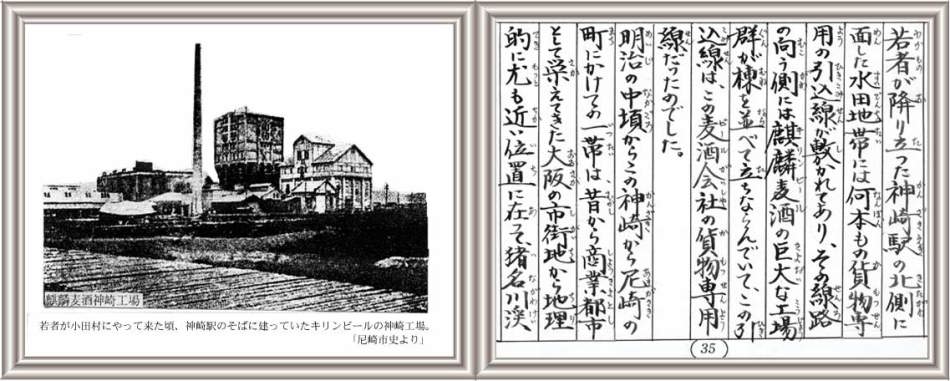 麒麟麦酒神崎工場
若者が小田村にやって来た頃、神崎駅のそばに建っていたキリンビールの神崎工場。
「尼崎市史より」
若者が降り立った神崎駅の北側に
面した水田地帯には何本もの貨物専
用の引込線が敷かれてあり、その線路
の向う側には麒麟麦酒の巨大な工場
群が棟を並べて立ちならんでいて、この引
込線は、この麦酒会社の貨物専用
線だったのでした。
明治の中頃からこの神崎から尼崎の
町にかけての一帯は昔から商業都市
として栄えてきた大阪の市街地から地理
的に尤も近い位置に在って、猪名川渓
35